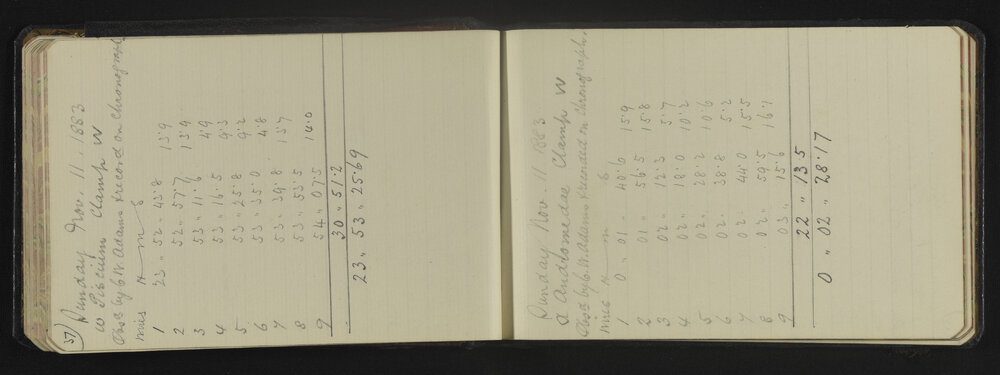 37)
Sunday Nov. 11. 1883
ω Piscium Clamp W
Obsd by C.W. Adams & record on Chronograph
Wires H m s
1 23 " 52 " 43.8 13.9
2 52 " 57.7 13.9
3 53 " 11.6 4.9
4 53 " 16.5 9.3
5 53 " 25.8 9.2
6 53 " 35.0 4.8
7 53 " 39.8 13.7
8 53 " 53.5 14.0
9 54 " 07.5
30 " 51.2
23 " 53 " 25.69
Sunday Nov. 11 1883
α Andromedae Clamp W
Obsd by C.W. Adams & recorded on Chronograph
Wires H m s
1 0 " 01 " 40.6 15.9
2 01 " 56.5 15.8
3 02 " 12.3 5.7
4 02 " 18.0 10.2
5 02 " 28.2 10.6
6 02 " 38.8 5.2
7 02 " 44.0 15.5
8 02 " 59.5 16.1
9 03 " 15.6
22 " 13.5
0 " 02 " 28.17